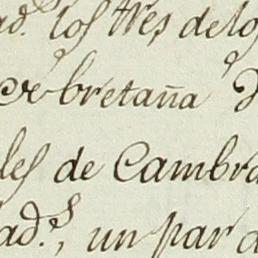 ad.s los tres de los
de bretaña
les de Cambra
ad.s, un par d